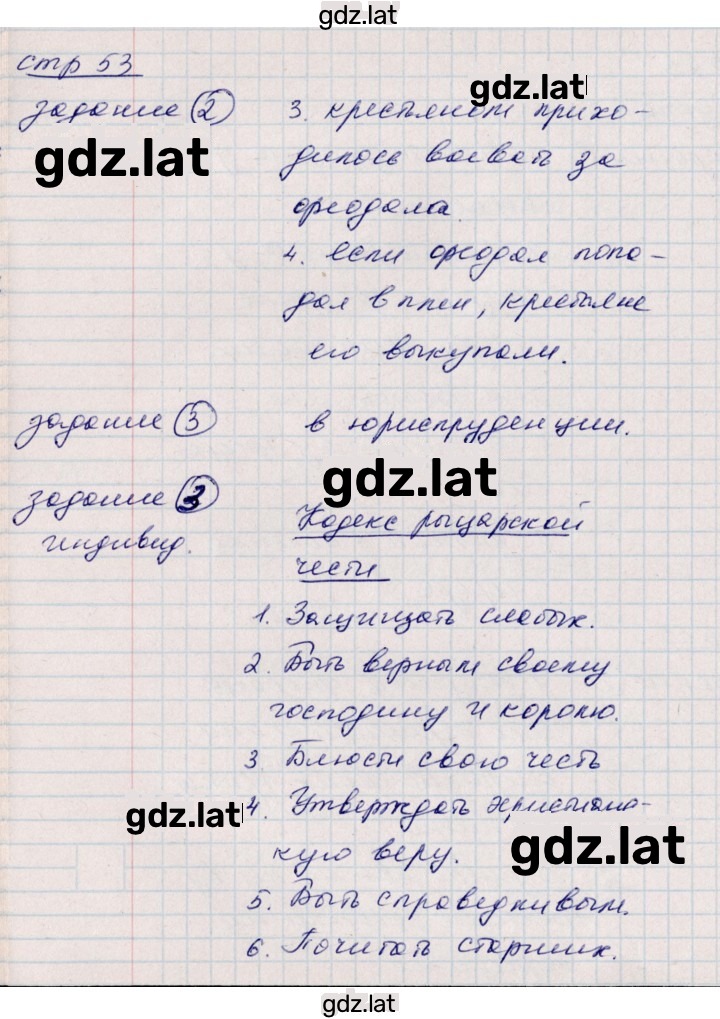 gdz.lat
стр 53
gdz.lat
задание 2 3. крестьянам прихо-
gdz.lat
дилось воевать за
феодала.
4. если феодал попа-
дал в плен, крестьяне
его выкупали.
задание 3 в юриспруденции.
gdz.lat
задание 3
индивид.
Кодекс рыцарской
чести
1. Защищать слабых.
2. Быть верным своему
господину и королю.
3. Блюсти свою честь
4. Утверждать христианс-
gdz.lat
кую веру.
gdz.lat
5. Быть справедливым.
6. Почитать старших.
gdz.lat